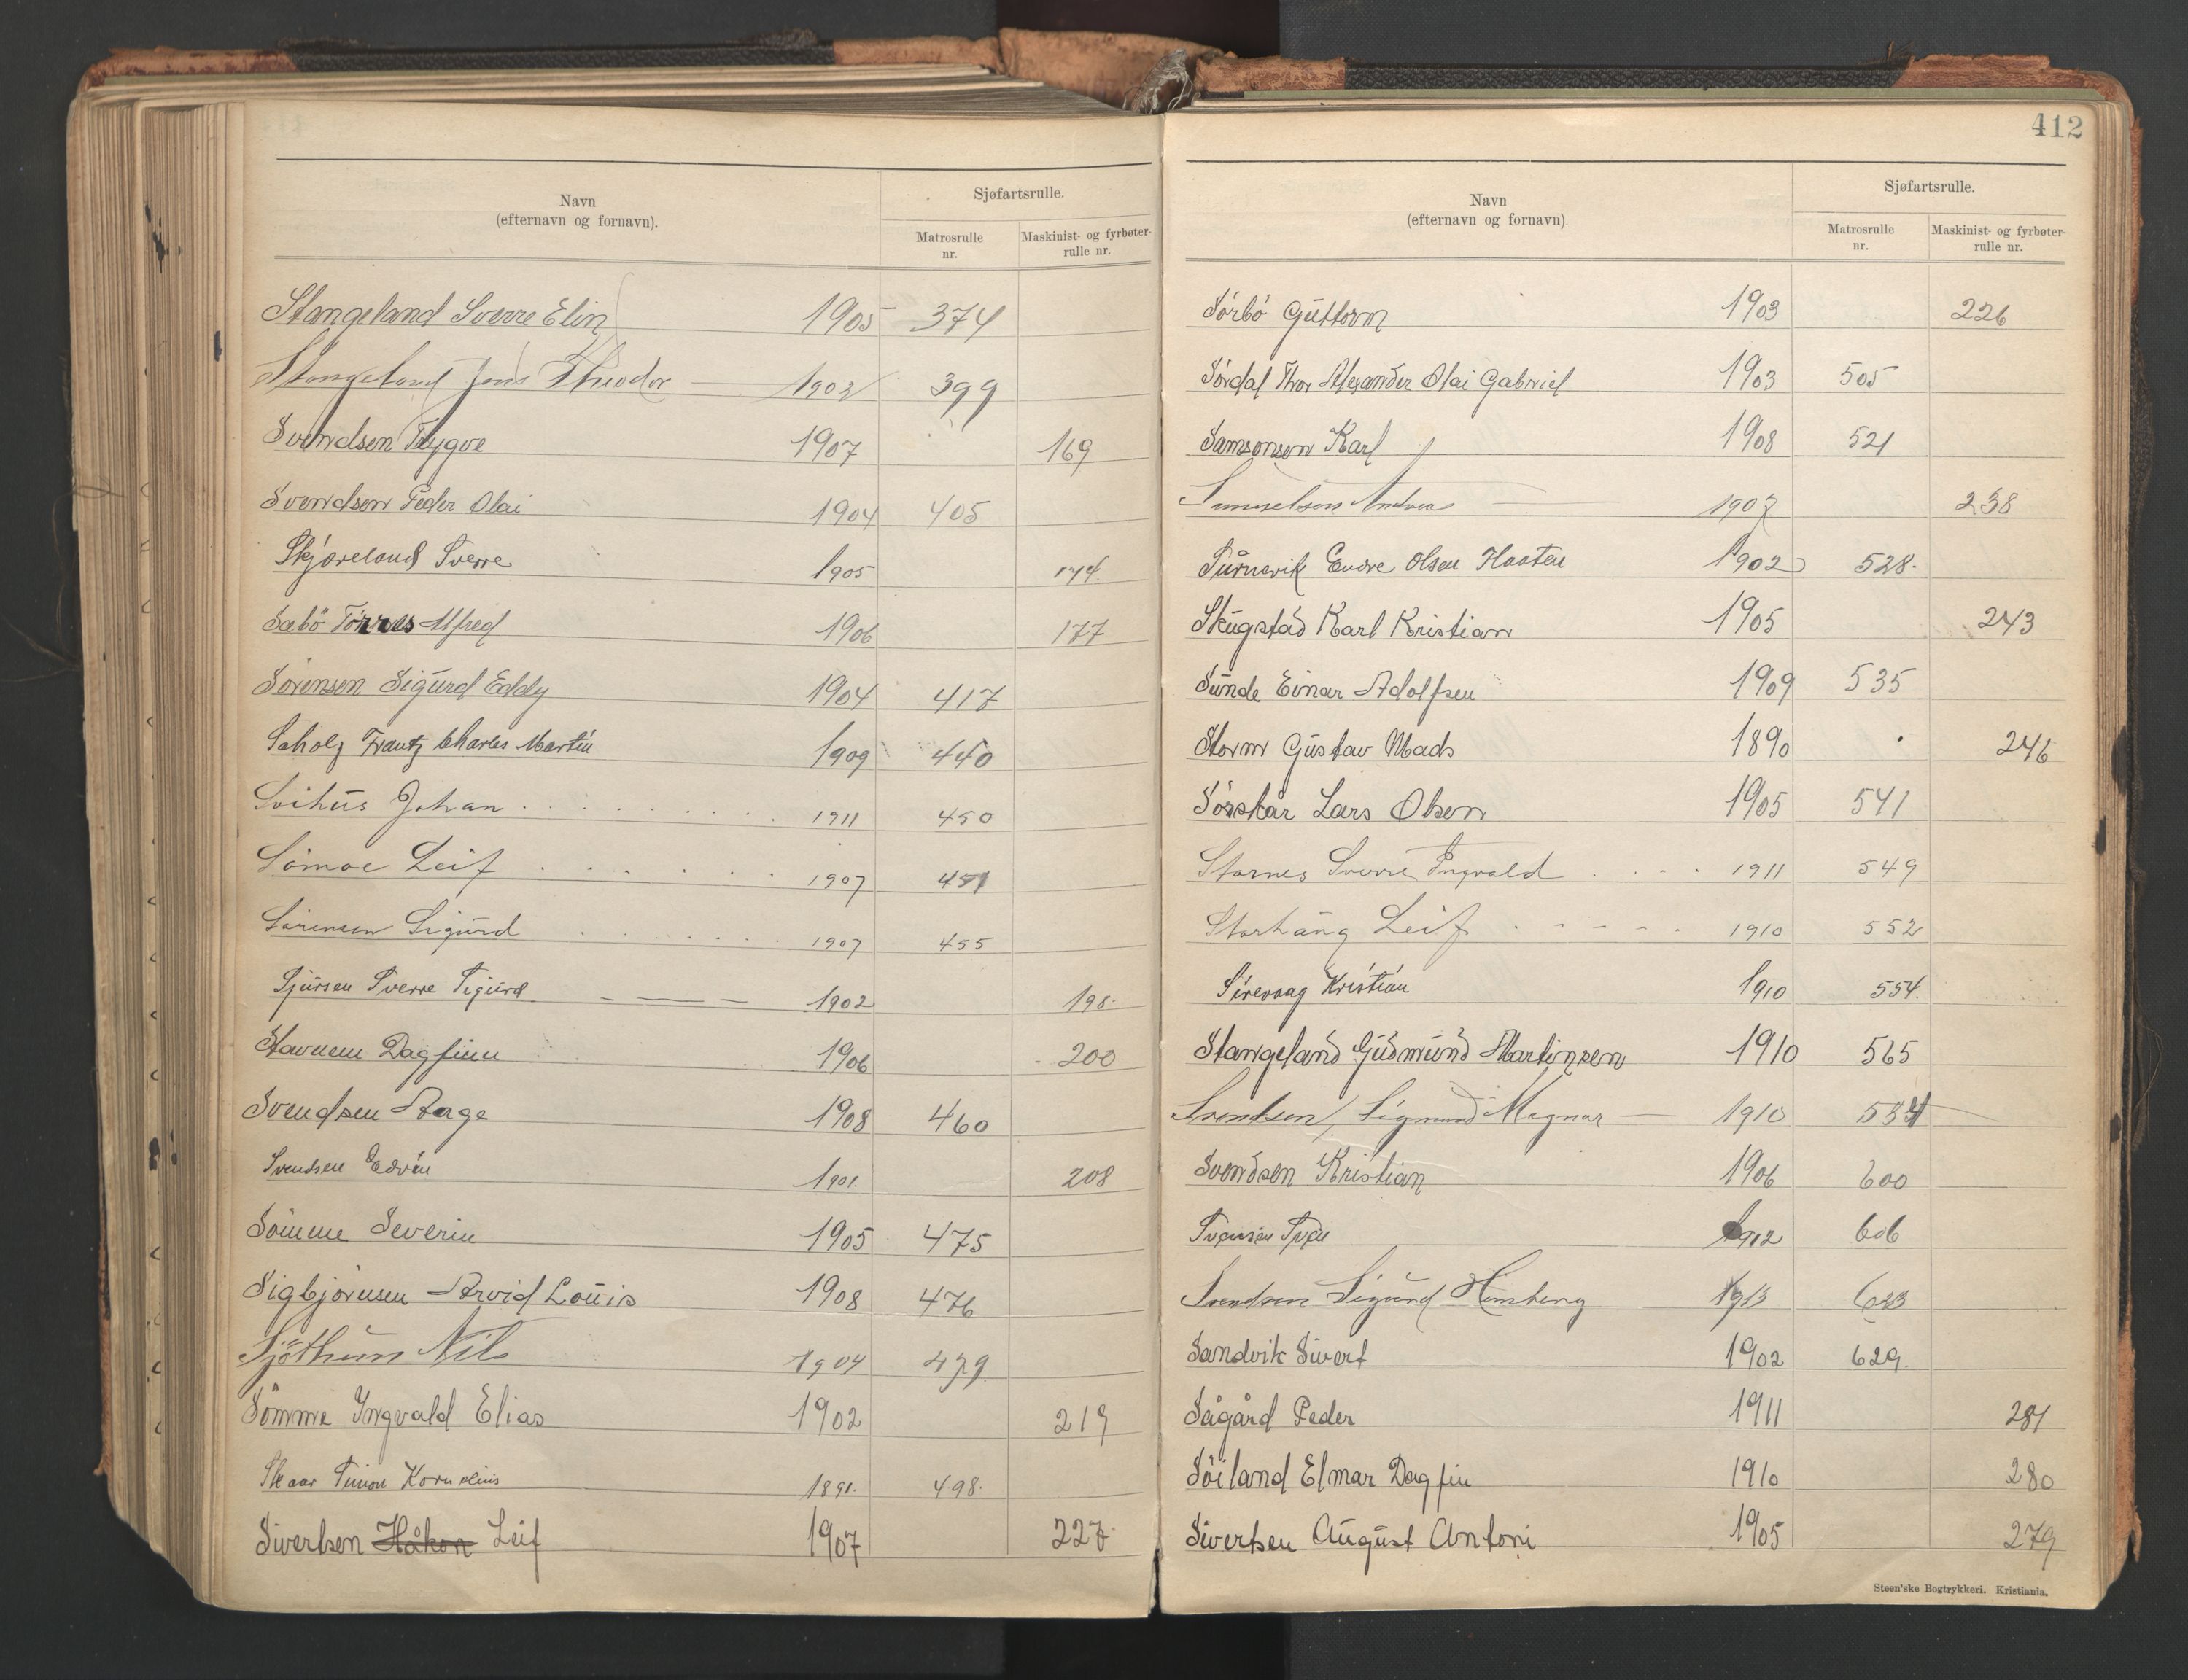 Navn
(efternavn og fornavn).
Sjøfartsrulle.
Matrosrulle nr.
Maskinist- og fyrbøter-rulle nr.
Stangeland Sverre Elin 1905 374
Stangeland Jens Theodor 1902 399
Svendsen Trygve 1907 169
Svendsen Peder Olai 1904 405
Skjæreland Sverre 1905 174.
Sæbö Alfred 1906 177
Sörensen Sigurd Eddy 1904 417
Scholz Frantz Charles Martin 1909 440
Svihus Johan . . . . . . . . 1911 450
Sömoe Leif . . . . . . 1907 451
Sörensen Sigurd . . . . . . 1907 455
Sjursen Sverre Sigurd — — — 1902 198.
Stavnem Dagfinn 1906 200
Svendsen Aage 1908 460
Svendsen Edvin 1901. 208
Sömme Severin 1905 475
Sigbjörnsen Arvid Louis 1908 476
Sjöthun Nils 1904 479
Sömme Yngvald Elias 1902 219
Skaar Simon Kornelius 1891. 498.
Sivertsen Håkon Leif 1907 227.
412
Navn
(efternavn og fornavn).
Sjøfartsrulle.
Matrosrulle nr.
Maskinist- og fyrbøter-rulle nr.
Sörbö Guttorm 1903 226
Sördal Thor Alexander Olai Gabriel 1903 505
Samsonsen Karl 1908 521
Samuelsen Andreas 1907 238
Endre Olsen 1902 528.
Skugstad Karl Kristian 1905 243
Sunde Einar Adolfsen 1909 535
Storm Gustav Mads 1890 246
Sörskår Lars Olsen 1905 541
Stornes Sverre Ingvald . . . . 1911 549
Storhaug Leif . - - - . 1910 552
Sirevaag Kristian 1910 554.
Stangeland Gudmund Martinsen 1910 565
Svendsen, Sigmund Magnar — 1910
Svendsen Kristian 1906 600
1912 606
Svendsen Sigurd 1913
Sandvik Sivert 1902 629.
Sågård Peder 1911 281
Söiland Elmar Dagfin 1910 280
Sivertsen August Antoni 1905 279
Steen'ske Bogtrykkeri. Kristiania.